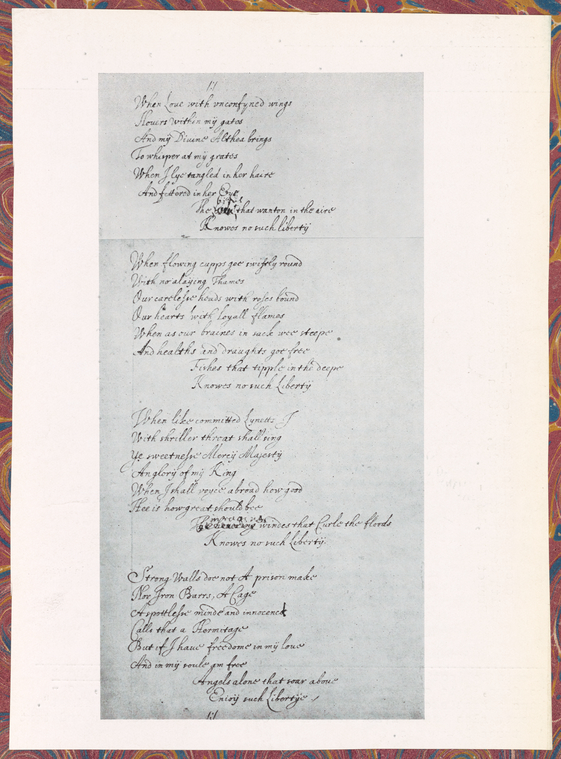 When Loue with vnconfyned wings
Houers within my gates
And my Diuine Althea brings
To whisper at my grates
When I lye tangled in her haire
And fettered in her Eye
The birds that wanton in the aire
Knowes no such liberty
When flowing cupps goe swiftly round
With no alaying Thames
Our carelesse heads with roses bound
Our hearts with Loyall flames
When as our braines in sack wee steepe
And healths and draughts goe free
Fishes that tipple in the deepe
Knowes no such Liberty
When like committed Lynetts I
With shriller throat shall sing
Ye sweetnesse Mercy Majesty
An glory of my King
When I shall voyce abroad how good
Hee is how great should bee
windes that Curle the floods
Knowes no such Liberty
Strong Walls doe not A prison make
Nor Iron Barrs, A Cage
A spottlesse minde and innocent
Calls that a Hermitage
But if I haue freedome in my loue
And in my soule am free
Angels alone that soar aboue
Enioy such Libertye